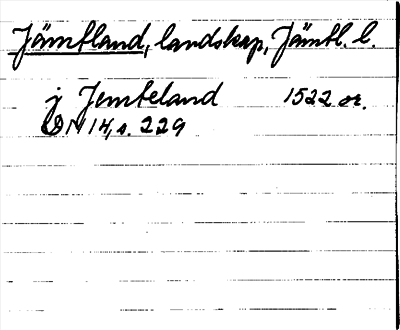 Jämtland, landskap, Jämtl. l.
j Jemteland 1522 or.
DN 14, s. 229